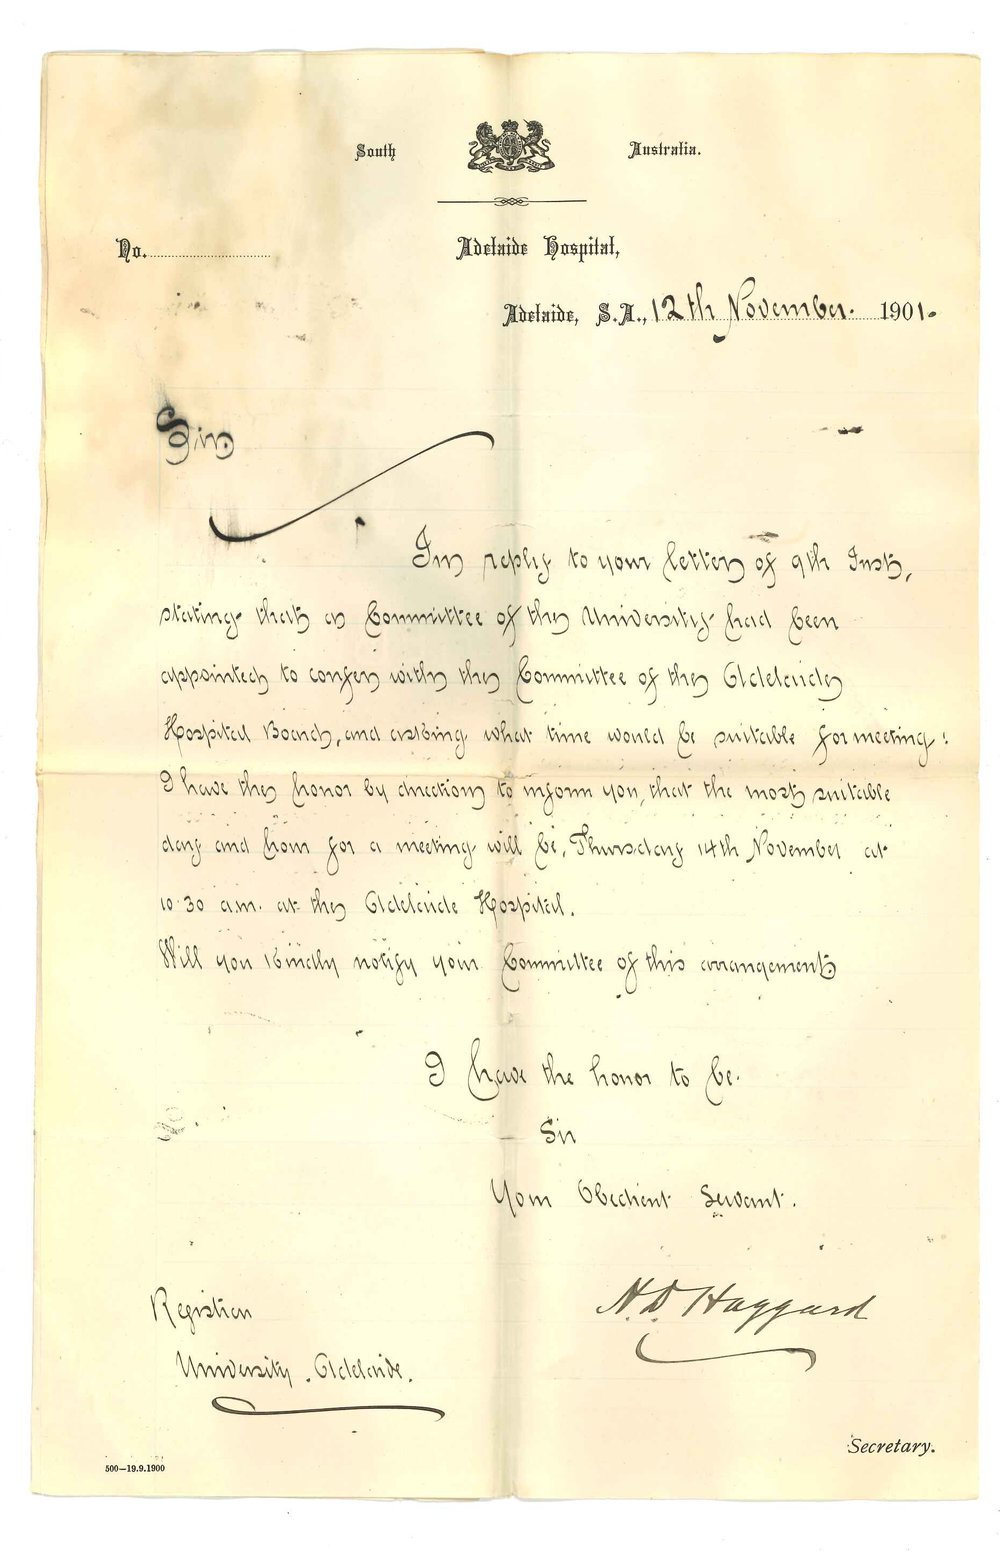 South Australia.
No.
Adelaide Hospital,
Adelaide, S.A., 12th November. 1901.
Sir
In reply to your letter of 9th Inst,
stating that a Committee of the University had been
appointed to confer with the Committee of the Adelaide
Hospital Board, and asking what time would be suitable for meeting:
I have the honor by direction to inform you, that the most suitable
day and hour for a meeting will be, Thursday 14th November at
10.30 a.m. at the Adelaide Hospital.
Will you kindly notify your Committee of this arrangement
I have the honor to be.
Sir
Your Obedient Servant.
H. D. Haggard
Registrar
University. Adelaide.
Secretary.
500—19.9.1900